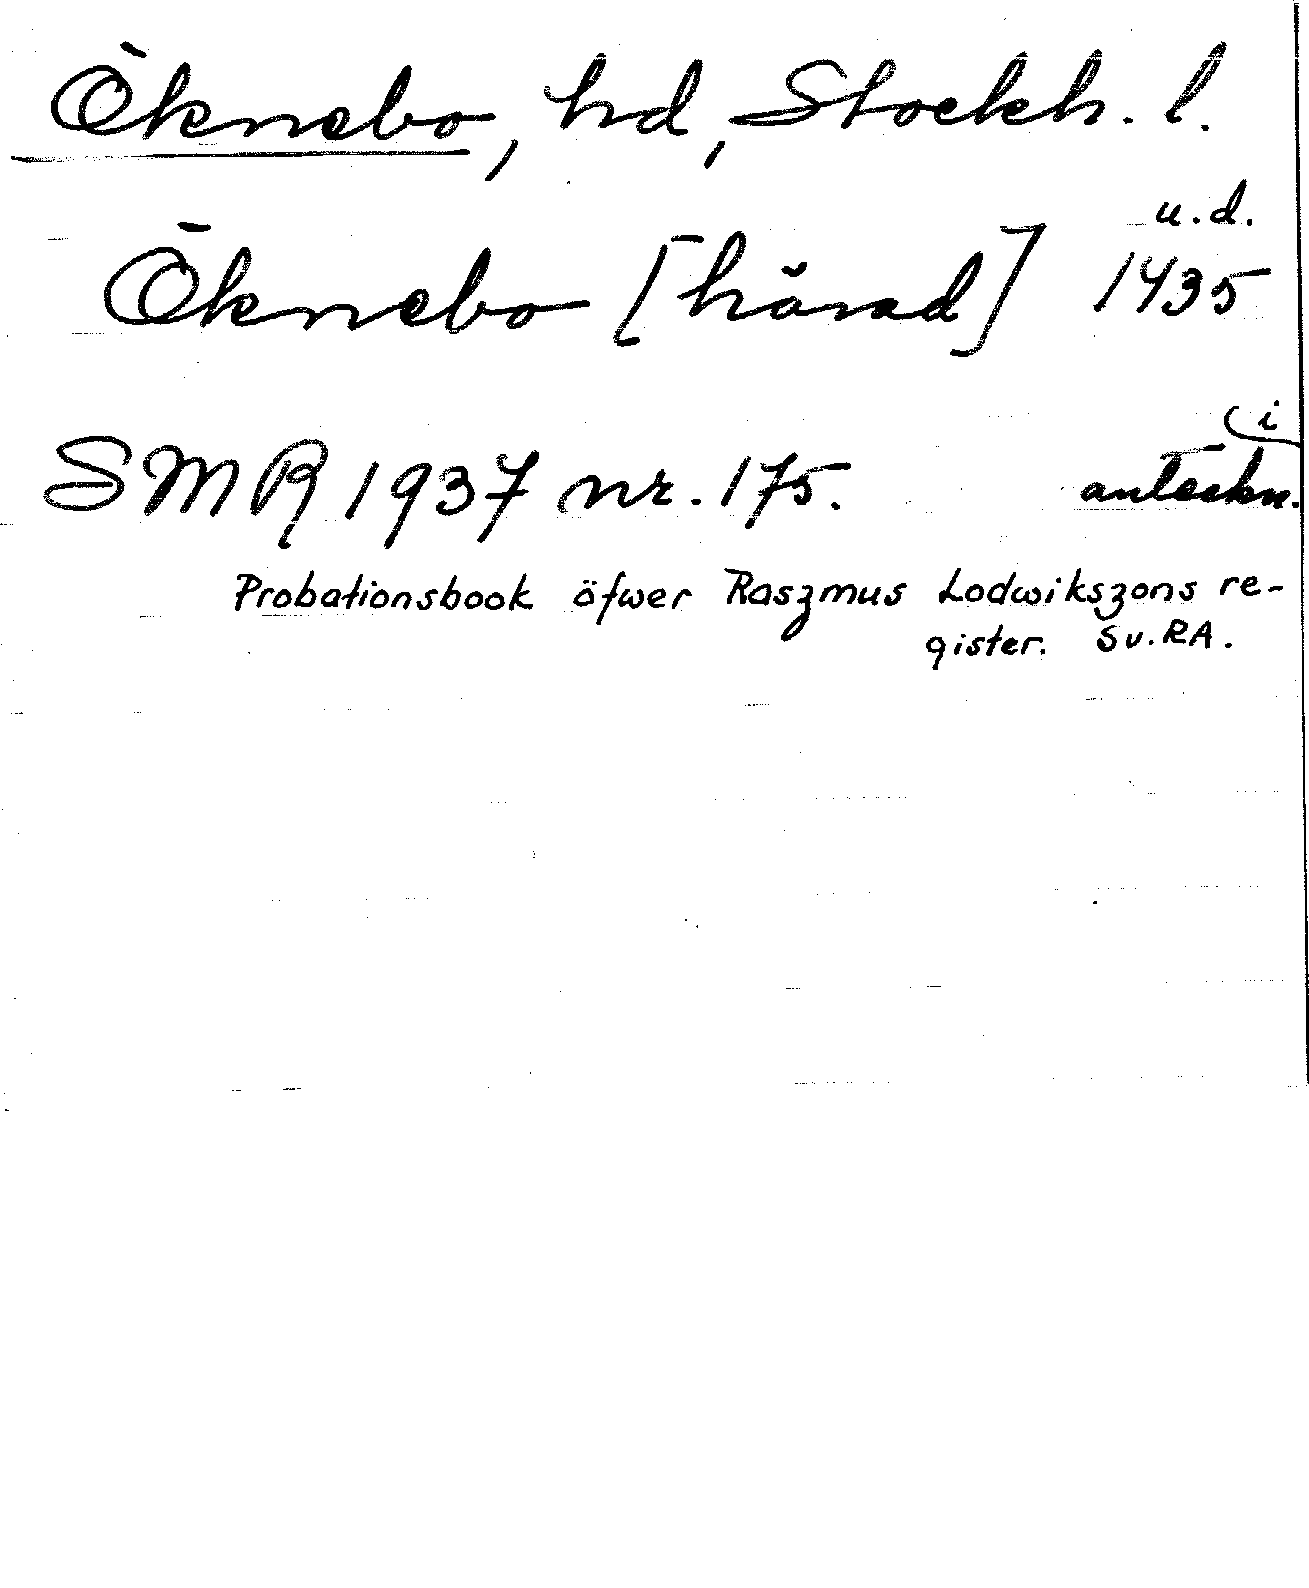 Öknebo, hd, Stockh. l.
u.d.
Öknebo [härad] 1435
i
SMR 1937 nr. 175. anteckn.
Probationsbook öfwer Raszmus Lodwikszons re-
gister. Sv. RA.